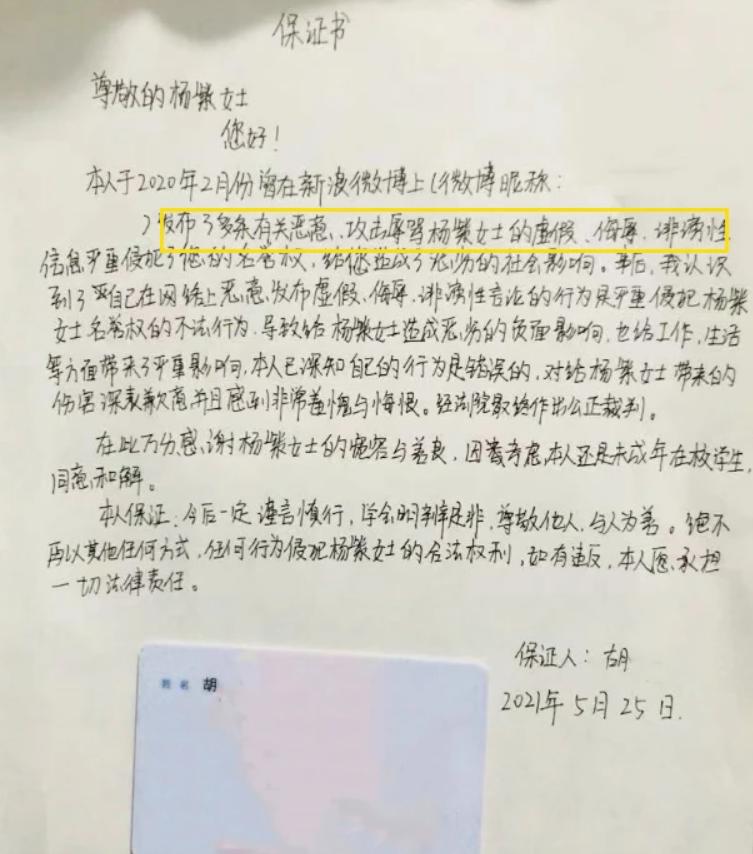 保证书
尊敬的杨紫女士
您好！
本人于2020年2月份曾在新浪微博上（微博昵称：
）发布了多条有关恶意、攻击辱骂杨紫女士的虚假、侮辱、诽谤性
信息严重侵犯了您的名誉权，给您造成了恶劣的社会影响。事后，我认识
到了自己在网络上恶意发布虚假、侮辱、诽谤性言论的行为是严重侵犯杨紫
女士名誉权的不法行为，导致给杨紫女士造成恶劣的负面影响，也给工作，生活
等方面带来了严重影响，本人已深知自己的行为是错误的，对给杨紫女士带来的
伤害深表歉意并且感到非常羞愧与悔恨。经法院最终作出公正裁判。
在此万分感谢杨紫女士的宽容与善良，因考虑本人还是未成年在校学生，
同意和解。
本人保证：今后一定谨言慎行，学会明辨是非，尊敬他人，与人为善。绝不
再以其他任何方式，任何行为侵犯杨紫女士的合法权利，如有违反，本人愿承担
一切法律责任。
保证人：胡
2021年5月25日.
姓名 胡